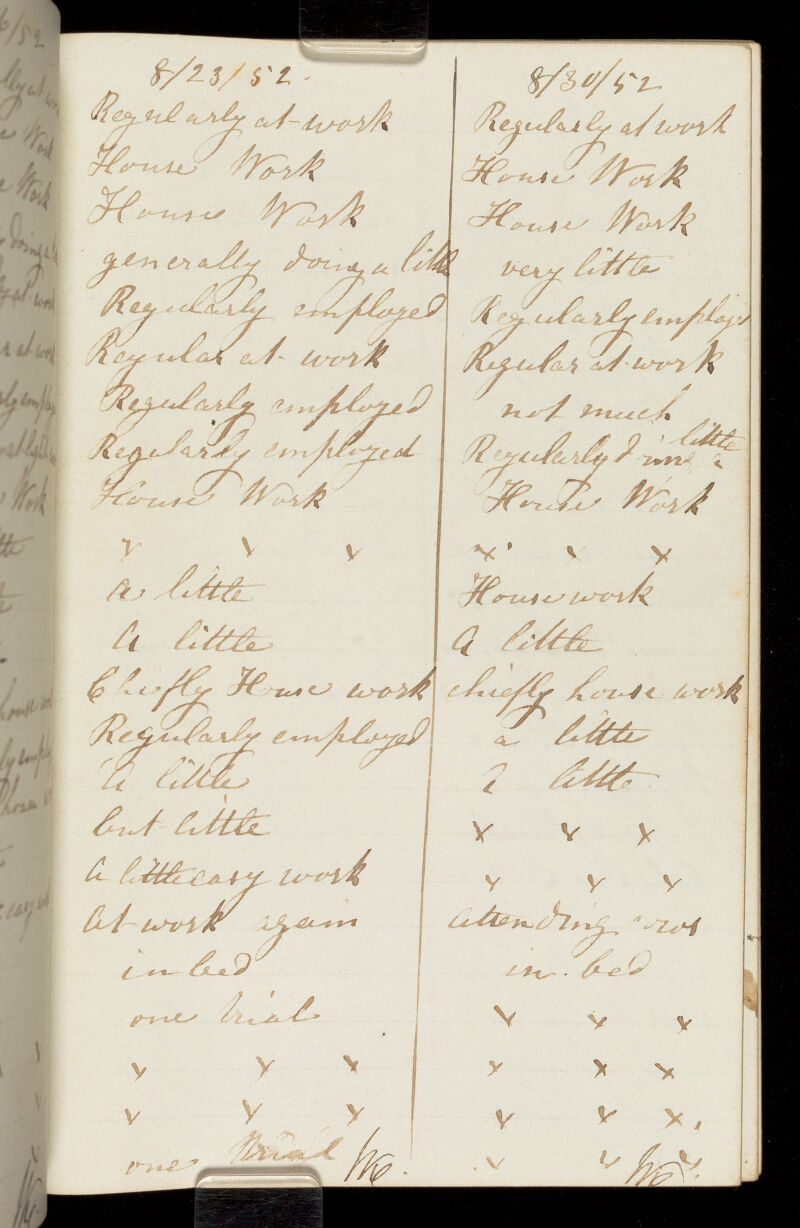 8/23/52.
Regularly at work
House Work
House Work
generally doing a little
Regularly employed
Regular at work
Regularly employed
Regularly employed
House Work
x x x
a little
A little
Chiefly House work
Regularly employed
A little
but little
A little easy work
At work again
in bed
one trial
x x x
x x x
one trial
8/30/52
Regularly at work
House Work
House Work
very little
Regularly employed
Regular at work
not much
Regularly doing a little
House Work
x x x
House work
A little
chiefly house work
a little
a little
x x x
x x x
attending cows
in bed
x x x
x x x
x x x.
x x x